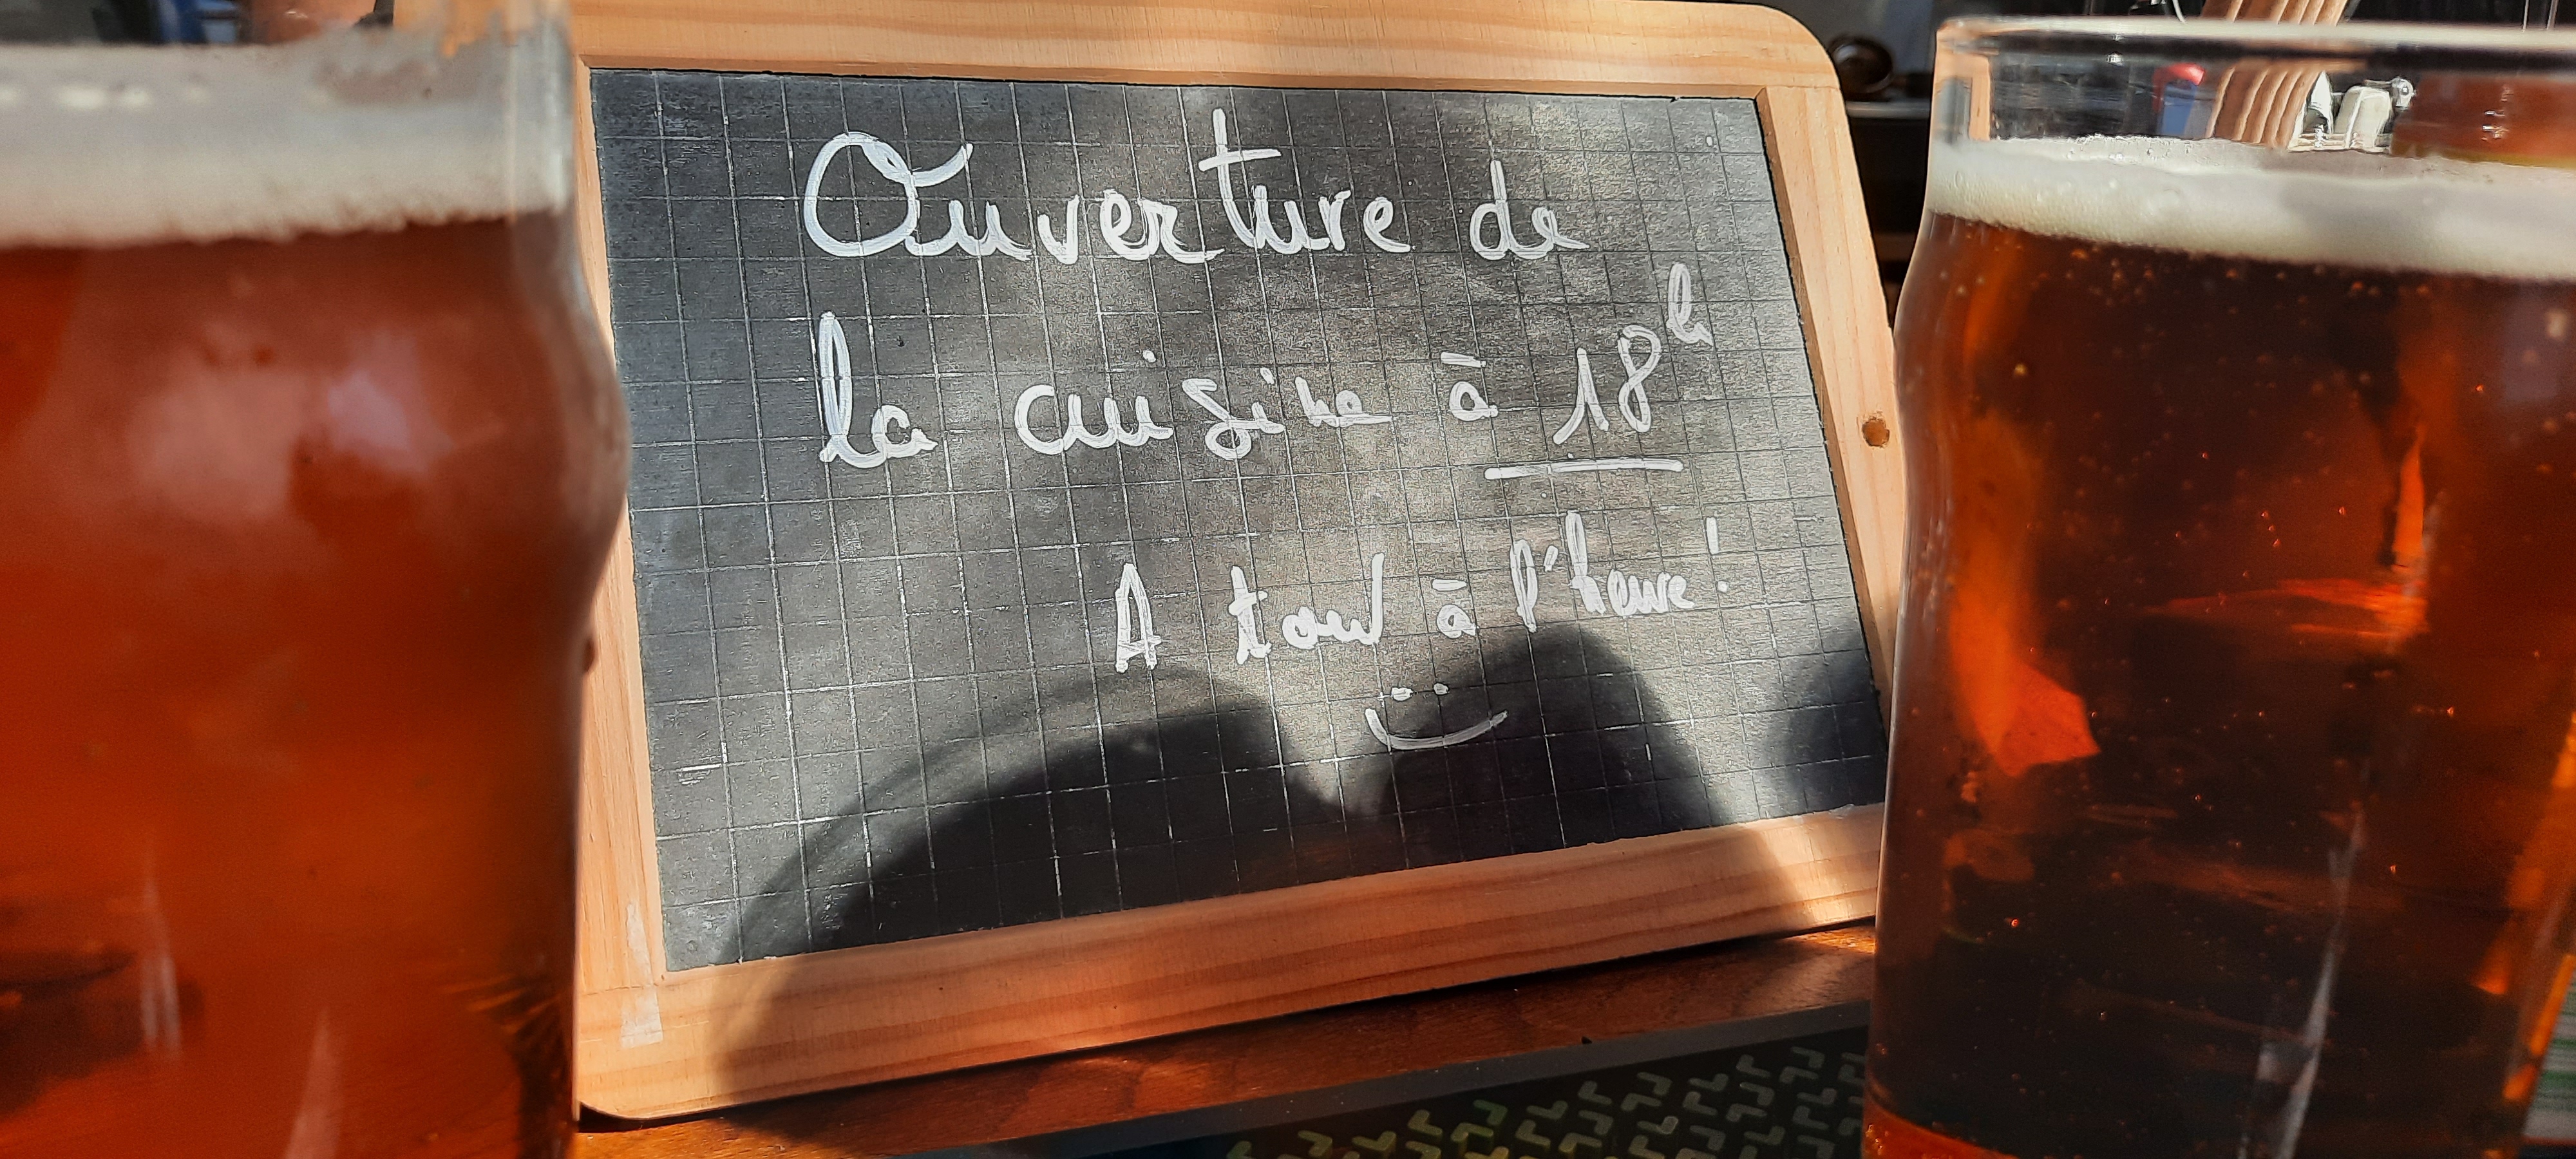 Ouverture de
la cuisine à 18h
A tout à l'heure!